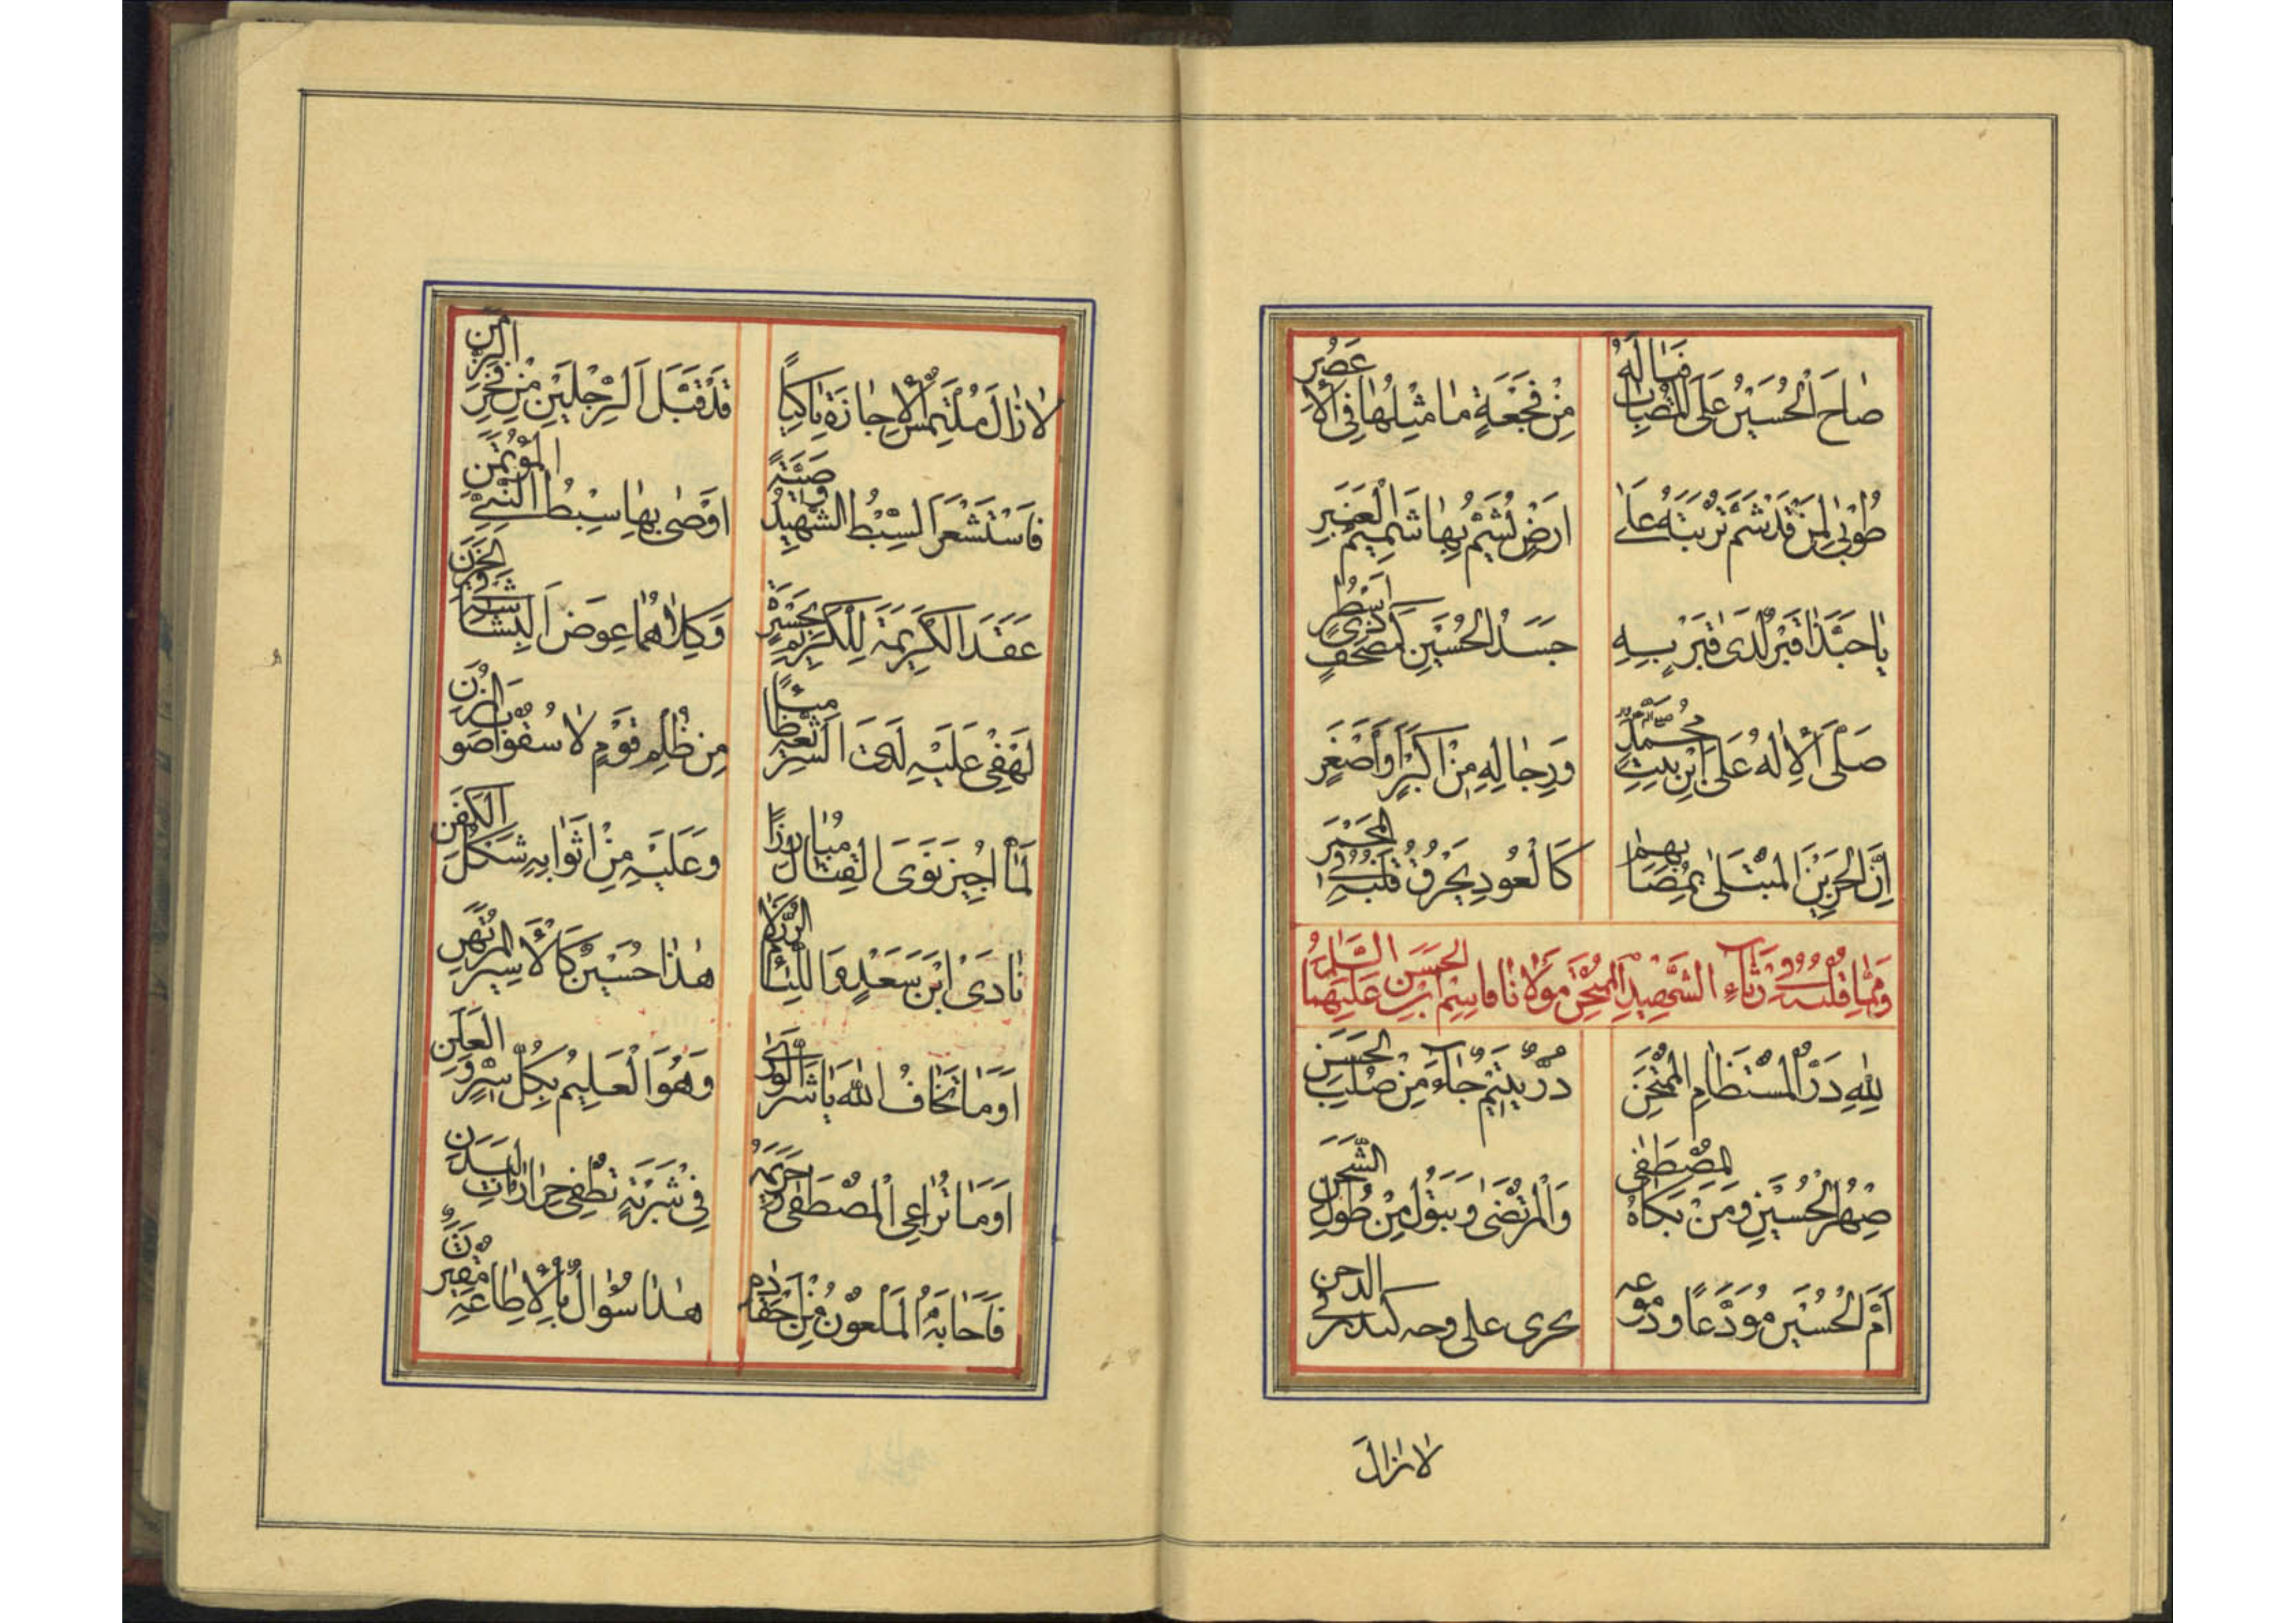 صٰاحَ الْحُسَيْنُ عَلَى الْمُصٰابِ فَمٰا لَهُ
مِنْ فَجْعَةٍ مٰا مِثْلُهٰا فِى الْاَعْصُرِ
طُوْبٰى لِمَنْ قَدْ شَمَّ تُرْبَتَهُ عَلٰى
اَرْضٍ نُشَمُّ بِهٰا شَمِيْمَ الْعَنْبَرِ
يٰا حَبَّذٰا قَبْرٌ لَدَى قَبْرٍ بِهِ
جَسَدُ الْحُسَيْنِ كَمُصْحَفٍ
صَلَّى الْاِلٰهُ عَلَى ابْنِ بِنْتِ مُحَمَّدٍ
وَرِجٰالِهِ مِنْ اَكْبَرٍ وَاَصْغَرٍ
اِنَّ الْحَزِيْنَ الْمُبْتَلٰى بِمُصٰابِهِمْ
كَالْعُوْدِ يُحْرَقُ قَلْبُهُ فِى الْمِجْمَرِ
وَمِمّٰا قُلْتُهُ فِى رِثٰاءِ الشَّهِيْدِ الْمُمْتَحَنِ مَوْلٰانٰا قٰاسِمِ ابْنِ الْحَسَنِ عَلَيْهِمَا السَّلٰامُ
لِلّٰهِ دَرُّ الْمُسْتَظٰامِ الْمُمْتَحَنِ
دُرٌّ يَتِيْمٌ جٰاءَ مِنْ صُلْبِ الْحَسَنِ
صِهْرُ الْحُسَيْنِ وَمَنْ بَكٰاهُ الْمُصْطَفٰى
وَالْمُرْتَضٰى وَبَتُوْلُ مِنْ طُوْلِ الشَّجَنِ
اَمَّ الْحُسَيْنَ مُوَدِّعًا وَدُمُوْعُهُ
تجرى على وجه كبدر فى الدجن
لٰازٰالَ
لٰازٰالَ مُلْتَمِسَ الْاِجٰازَةِ بٰاكِيًا
قَدْ قَبَّلَ الرِّجْلَيْنِ مِنْ فَخْرِ الزَّمَنِ
فَاسْتَشْعَرَ السِّبْطُ الشَّهِيْدُ وَصِيَّةً
اَوْصٰى بِهٰا سِبْطُ النَّبِيِّ الْمُؤْتَمَنِ
عَقَدَ الْكَرِيْمَةَ لِلْكَرِيْمِ بِحَسْرَةٍ
وَكِلٰاهُمٰا عِوَضَ الْبِشٰارَةِ فِى الْحَزَنِ
لَهْفِى عَلَيْهِ لَدَى
مِنْ ظُلْمِ قَوْمٍ لٰا سُقُوْا صَوْبَ الْمُزُنِ
لَمّٰا اُجِيْزَ نَوَى الْقِتٰالَ مُبٰارِزًا
وَعَلَيْهِ مِنْ اَثْوٰابِهِ شَكْلُ الْكَفَنِ
نٰادَى ابْنَ سَعْدٍ وَاللِّئٰامَ
هٰذٰا حُسَيْنٌ كَالْاَسِيْرِ الْمُرْتَهَنِ
اَوَمٰا تَخٰافُ اللهَ يٰا شَرَّ الْوَرٰى
وَهُوَ الْعَلِيْمُ بِكُلِّ سِرٍّ وَالْعَلَنِ
اَوَمٰا تُرٰاعِى الْمُصْطَفٰى فِى حَرِيْمِهِ
فِى شَرْبَةٍ تُطْفِى حَرٰارٰاتِ الْبَدَنِ
فَاَجٰابَهُ الْمَلْعُوْنُ مِنْ اَحْقٰادِهِ
هٰذٰا سُؤٰالٌ بِالْاِطٰاعَةِ مُقْتَرَنٌ